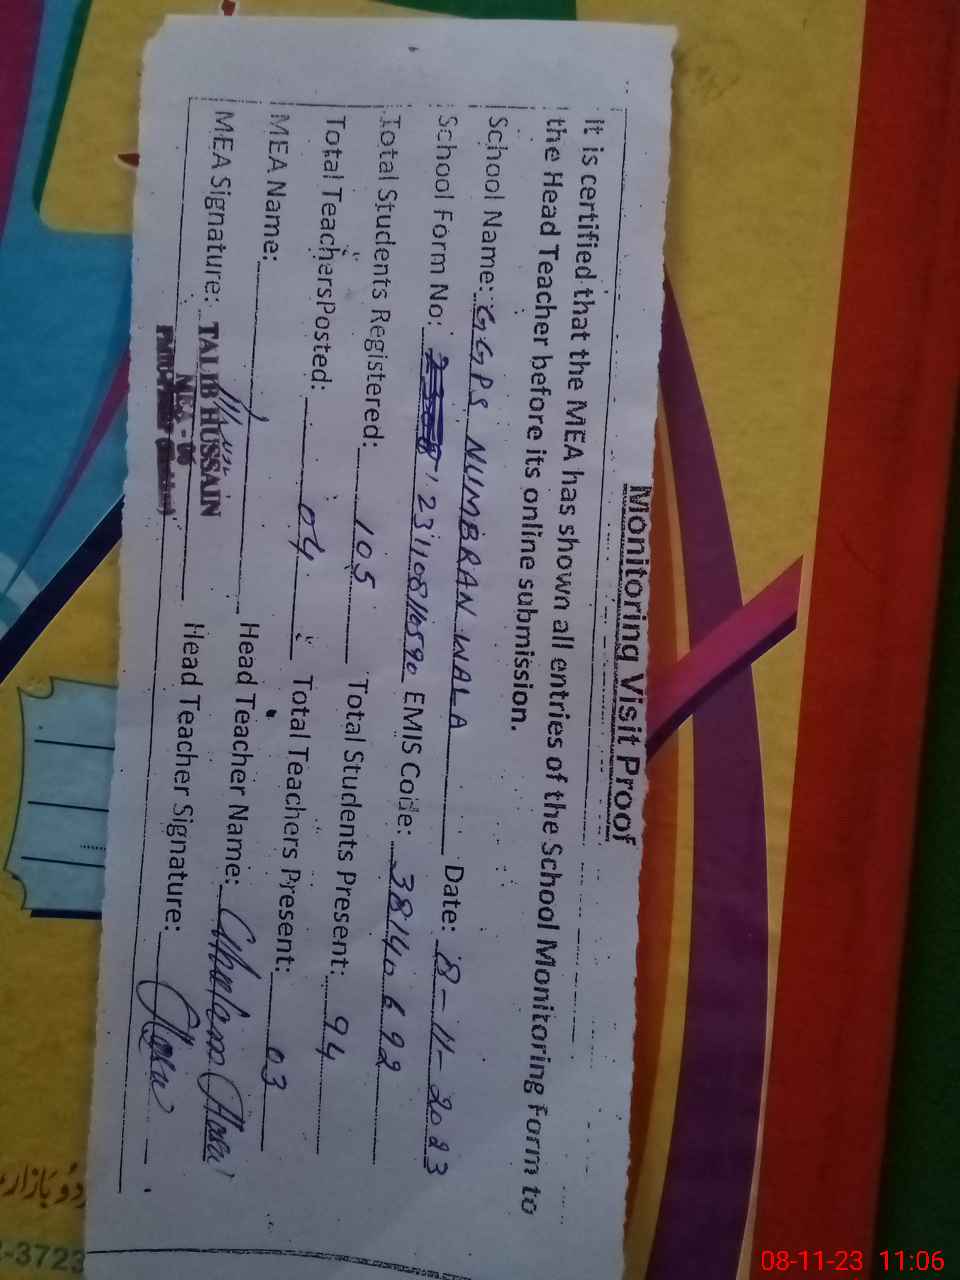 Monitoring Visit Proof
It is certified that the MEA has shown all entries of the School Monitoring Form to
the Head Teacher before its online submission.
School Name: GGPS NUMBRAN WALA Date: 8-11-2023
School Form No: 231108116590 EMIS Code: 38140692
Total Students Registered: 105 Total Students Present: 94
Total TeachersPosted: 04 Total Teachers Present: 03
MEA Name: Head Teacher Name: Ghulam
MEA Signature: TALIB HUSSAIN Head Teacher Signature:
MEA - 06
-3723
08-11-23 11:06